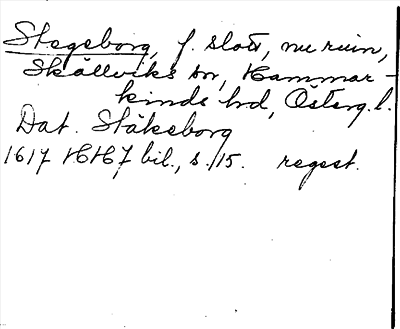 Stegeborg, f. slott, nu ruin,
Skällviks sn, Hammar-
kinds hd, Österg. l.
Dat. Stäkeborg
1617 HH 7 bil., s. 15. regest.